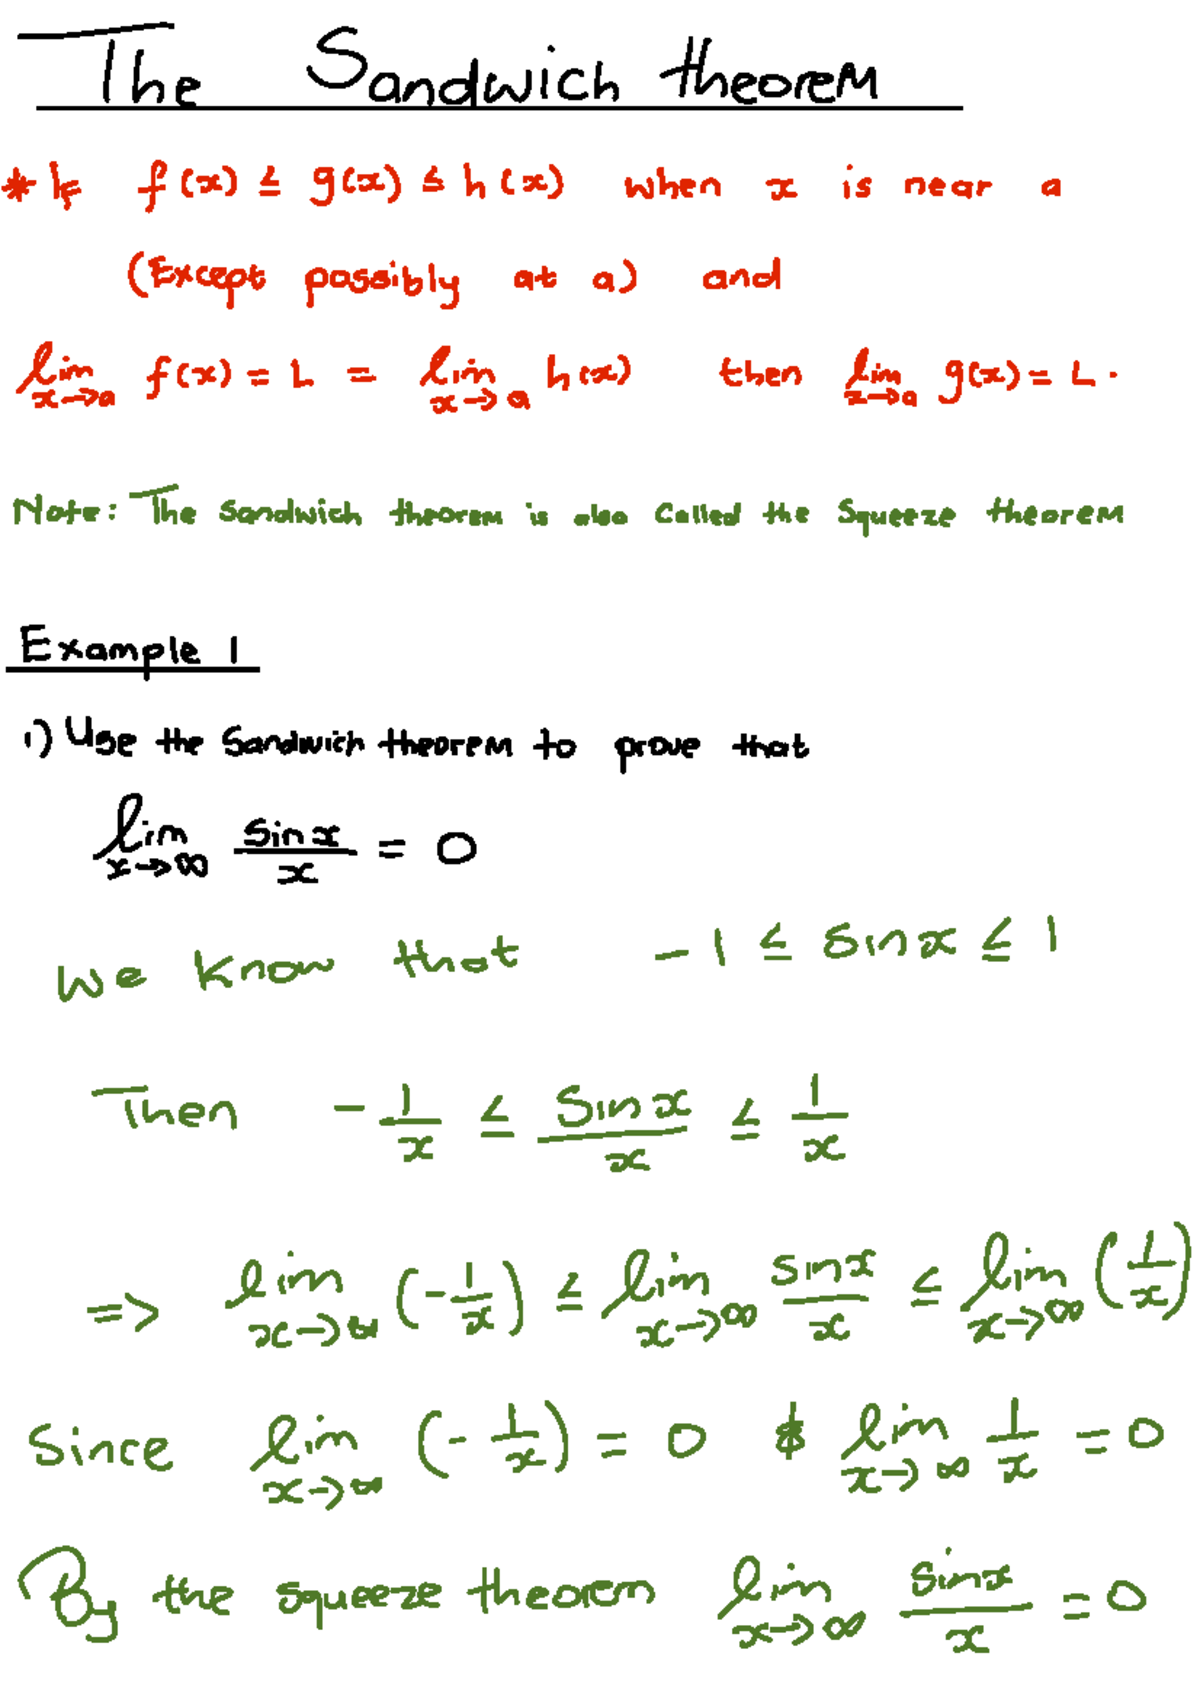 The Sandwich theorem
* If f(x) ≤ g(x) ≤ h(x) when x is near a
(Except possibly at a) and
lim x→a f(x) = L = lim x→a h(x) then lim x→a g(x) = L.
Note: The Sandwich theorem is also Called the Squeeze theorem
Example 1
1) Use the Sandwich theorem to prove that
lim x→∞ sinx/x = 0
We know that -1 ≤ sinx ≤ 1
Then -1/x ≤ sinx/x ≤ 1/x
=> lim x→∞ (-1/x) ≤ lim x→∞ sinx/x ≤ lim x→∞ (1/x)
Since lim x→∞ (-1/x) = 0 & lim x→∞ 1/x = 0
By the squeeze theorem lim x→∞ sinx/x = 0